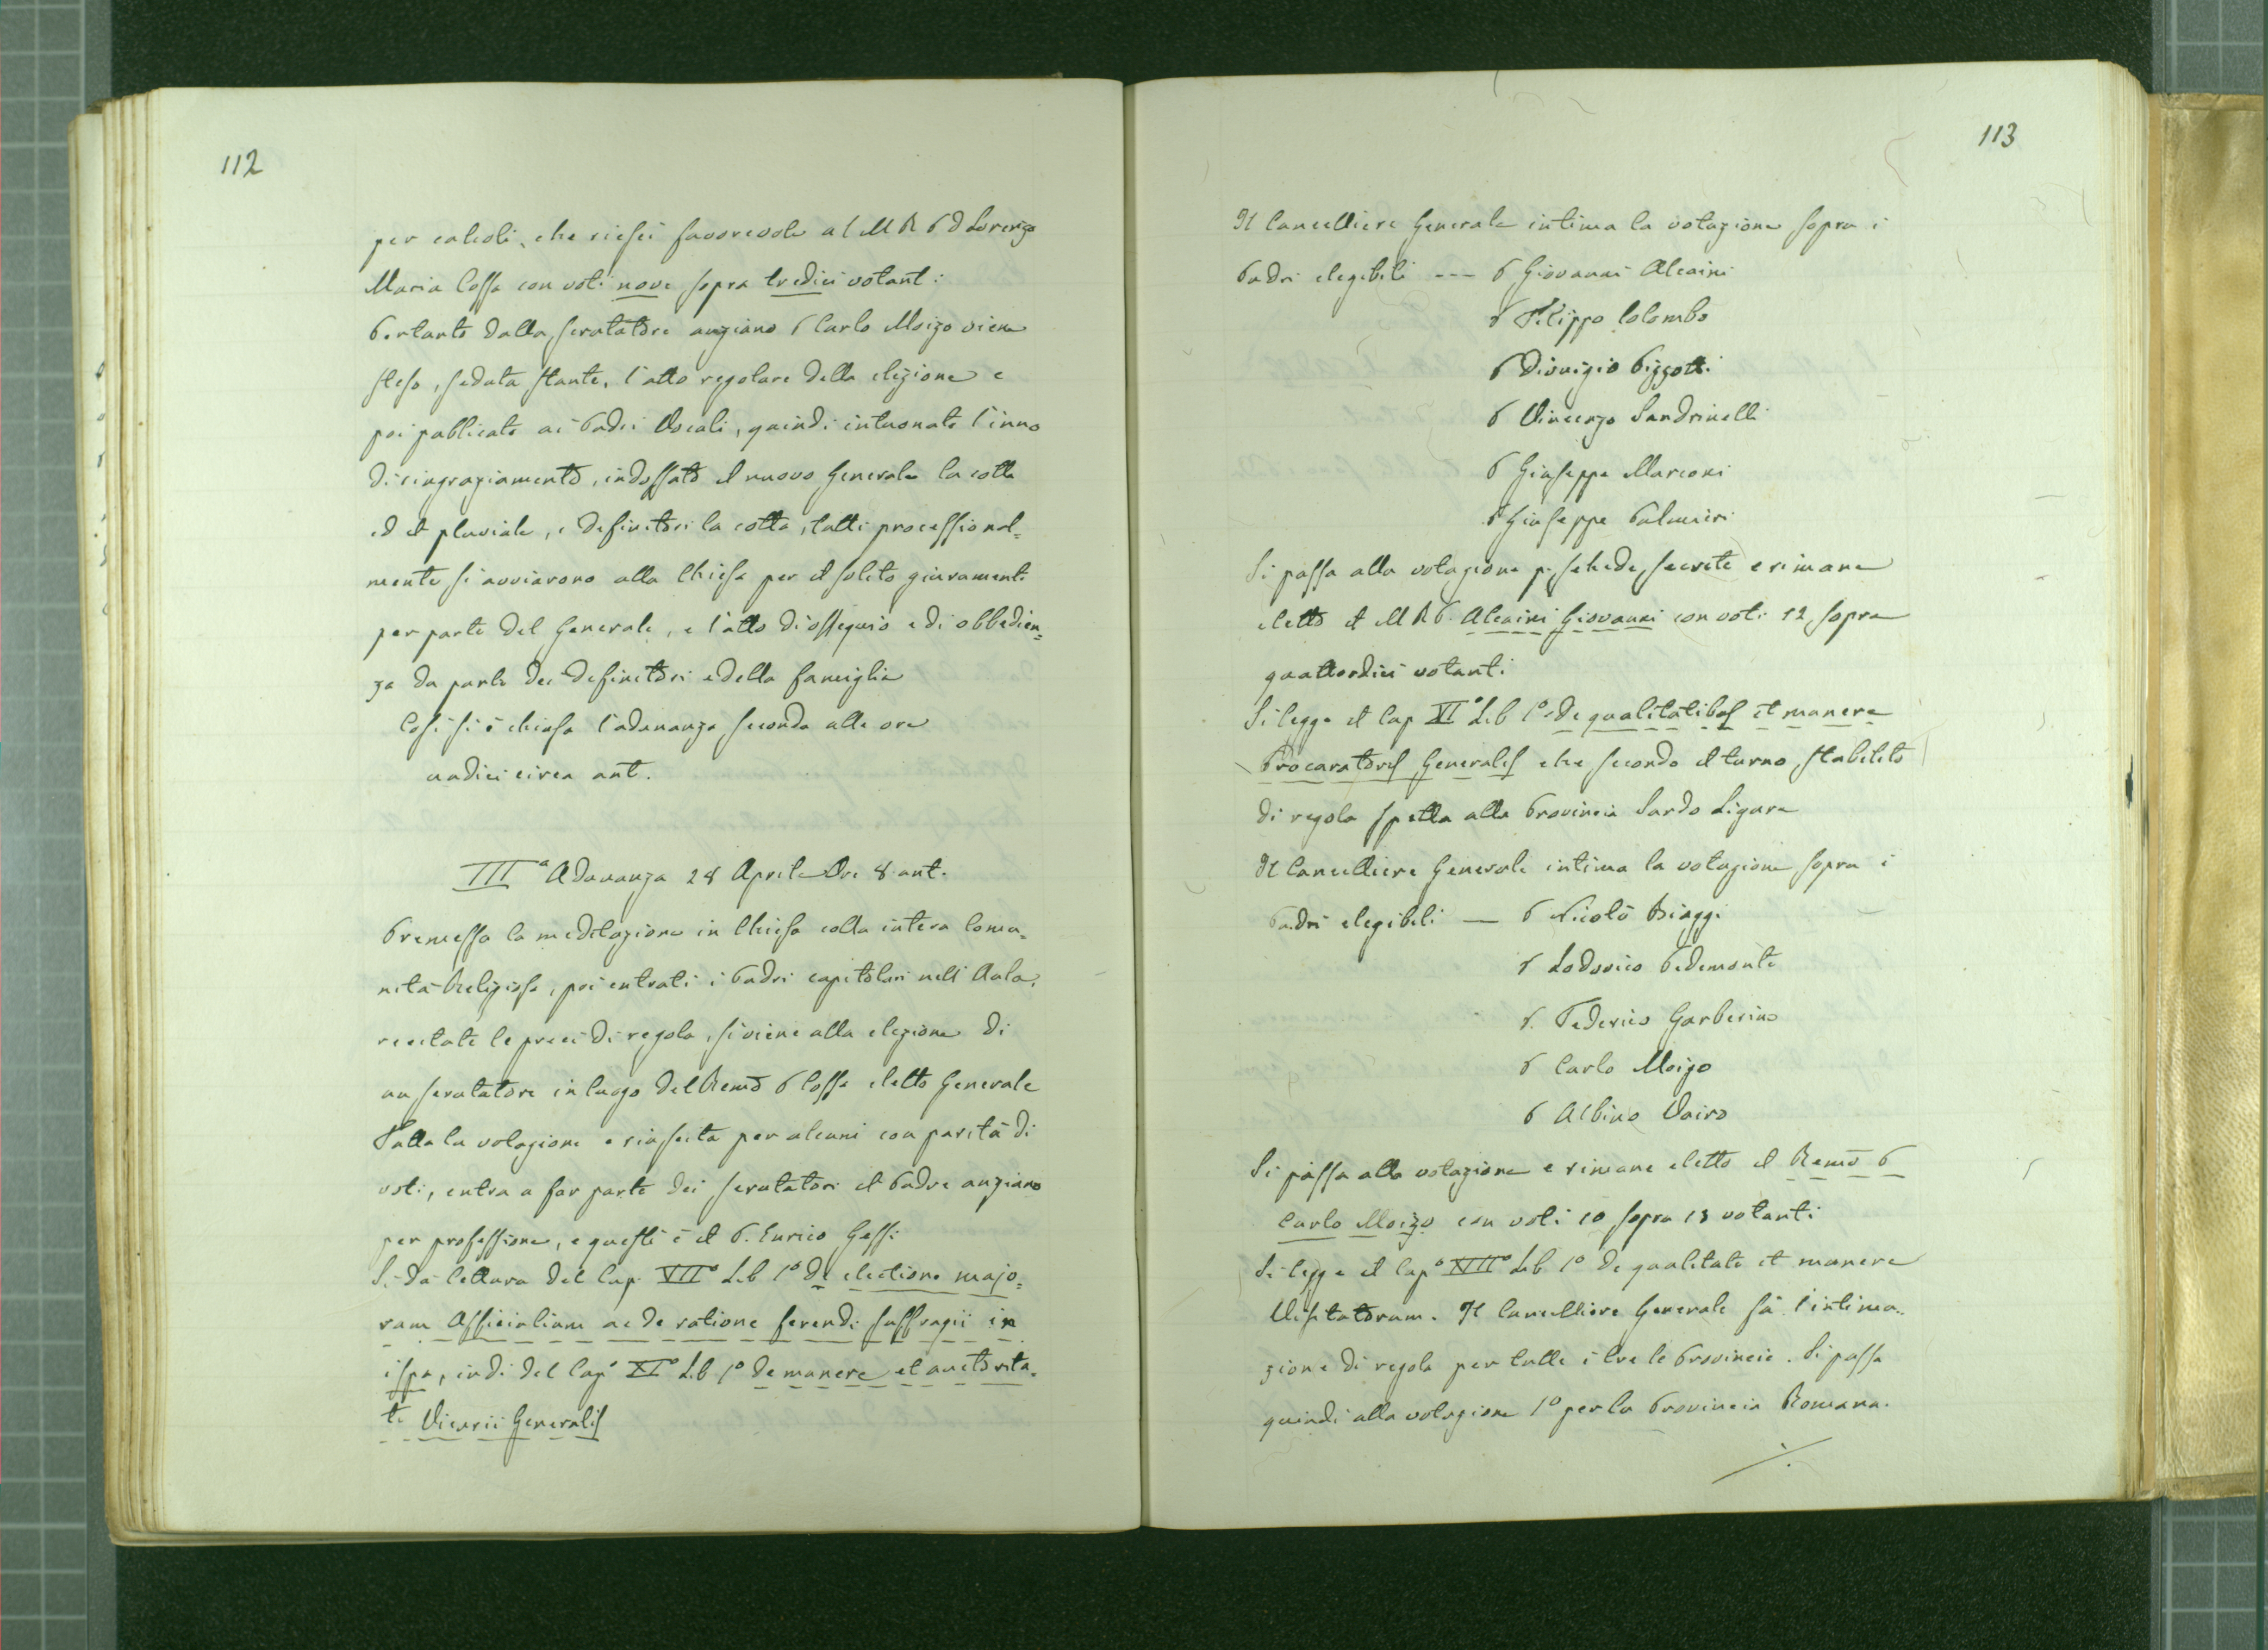 112
per calcoli, che riescì favorevole al M R P D Lorenzo
Maria Cossa con voti nove sopra tredici votanti
Pertanto dallo scrutatore anziano P Carlo Moizo viene
steso, seduta stante, l'atto regolare della elezione e
poi publicato ai Padri Vocali, quindi intuonato l'inno
di ringraziamento, indossato il nuovo Generale la cotta
ed il pluviale, i definitori la cotta, tutti processional=
mente si avviarono alla Chiesa per il solito giuramento
per parte del Generale, e l'atto di ossequio e di obbedien=
za da parte dei definitori e della famiglia
Così si è chiusa l'adunanza seconda alle ore
undici circa ant.
IIIª Adunanza 28 Aprile Ore 8 ant.
Premessa la meditazione in Chiesa colla intera Comu=
nità Religiosa, poi entrati i Padri capitolari nell'Aula,
recitate le preci di regola, si viene alla elezione di
un scrutatore in luogo del Remo P Cossa eletto Generale
Fatta la votazione e riuscita per alcuni con parità di
voti, entra a far parte dei scrutatori il Padre anziano
per professione, e questi è il P. Enrico Gessi
Si dà lettura del Cap. VIIº Lib 1º de electione majo=
rum Officialium ac de ratione ferendi suffragii in
ispa, indi del Capº XIº Lib 1º de munere et auctorita=
te Vicarii Generalis
113
Il Cancelliere Generale intima la votazione sopra i
Padri elegibili --- P Giovanni Alcaini
P Filippo Colombo
P Dionigio Pizzotti
P Vincenzo Sandrinelli
P Giuseppe Marconi
P Giuseppe Palmieri
Si passa alla votazione p. schede secrete e rimane
eletto il M R P. Alcaini Giovanni con voti 12 sopra
quattordici votanti
Si legge il Cap XIº Lib 1º de qualitatibus et munere
Procuratoris Generalis che secondo il turno stabilito
di regola spetta alla Provincia Sardo Ligure
Il Cancelliere Generale intima la votazione sopra i
Padri elegibili — P Nicolò Biaggi
P Lodovico Pedemonte
P. Federico Garberino
P Carlo Moizo
P Albino Vairo
Si passa alla votazione e rimane eletto il Remo P
Carlo Moizo con voti 10 sopra 13 votanti
Si legge il Capº XIIº Lib 1º de qualitate et munere
Visitatorum. Il Cancelliere Generale fà l'intima=
zione di regola per tutte i tre le Provincie. Si passa
quindi alla votazione 1º per la Provincia Romana.
./.